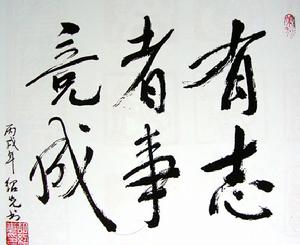 有志
者事
竟成
丙戌年绍先书